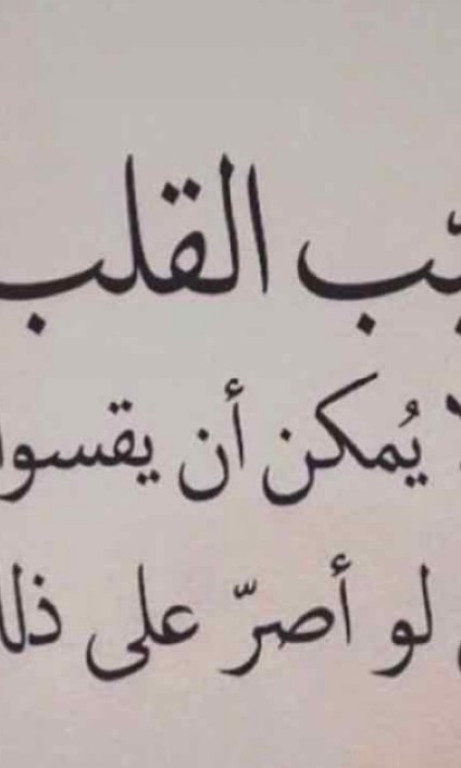 القلب
يُمكن أن يقسوا
لو أصرّ على